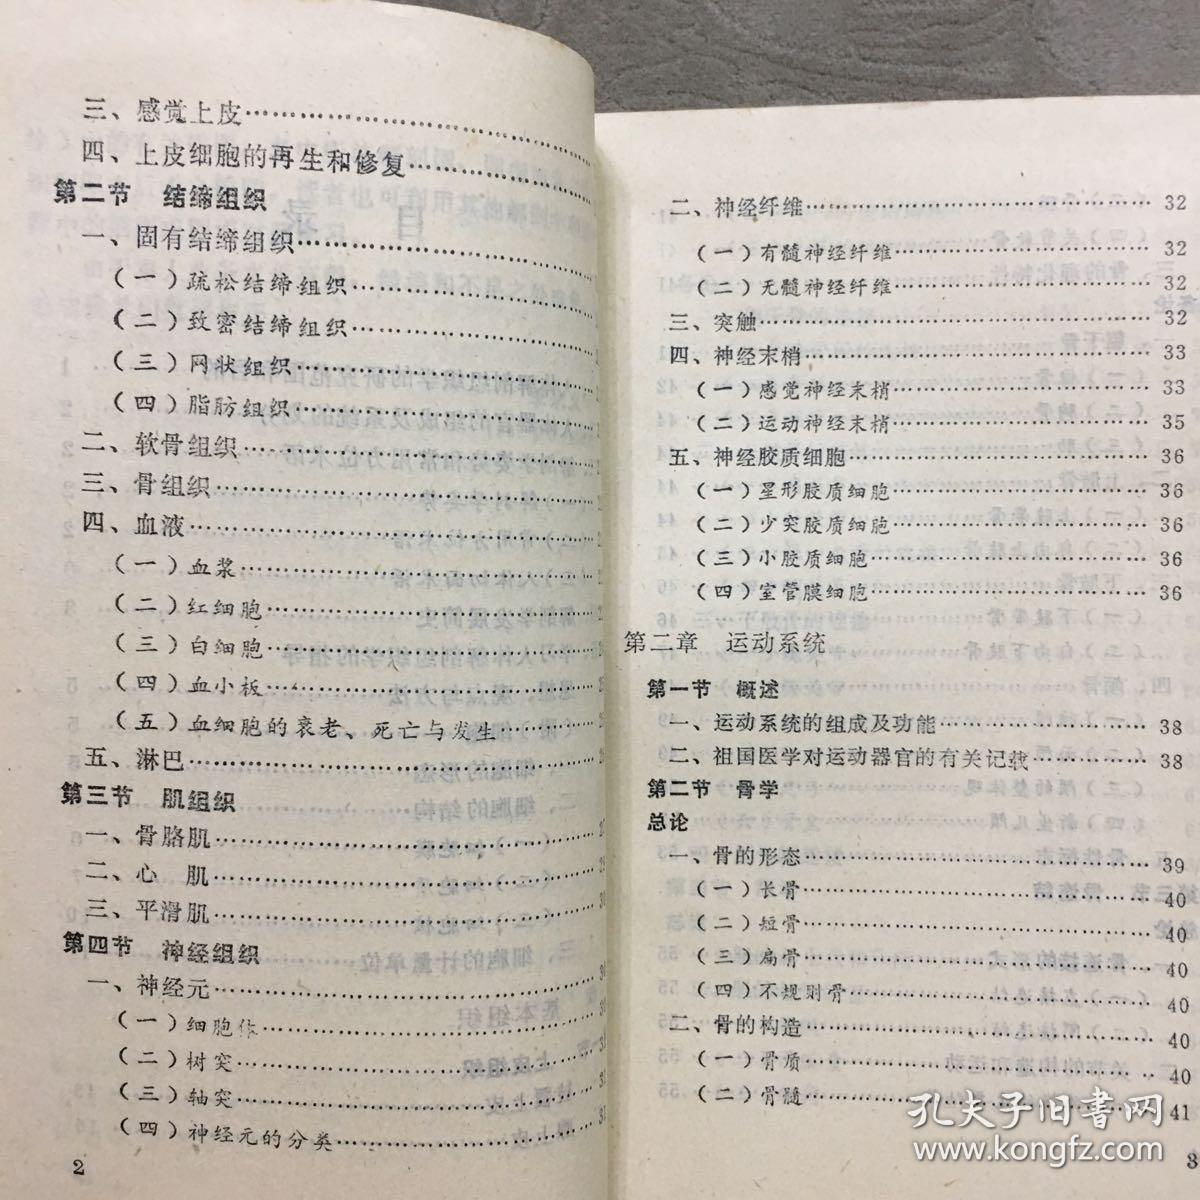 三、感觉上皮
四、上皮细胞的再生和修复
第二节 结缔组织
一、固有结缔组织
(一)疏松结缔组织
(二)致密结缔组织
(三)网状组织
(四)脂肪组织
二、软骨组织
三、骨组织
四、血液
(一)血浆
(二)红细胞
(三)白细胞
(四)血小板
(五)血细胞的衰老、死亡与发生
五、淋巴
第三节 肌组织
一、骨胳肌
二、心 肌
三、平滑肌
第四节 神经组织
一、神经元
(一)细胞体
(二)树突
(三)轴突
(四)神经元的分类
2
二、神经纤维 32
(一)有髓神经纤维 32
(二)无髓神经纤维 32
三、突触 32
四、神经末梢 33
(一)感觉神经末梢 33
(二)运动神经末梢 35
五、神经胶质细胞 36
(一)星形胶质细胞 36
(二)少突胶质细胞 36
(三)小胶质细胞 36
(四)室管膜细胞 36
第二章 运动系统
第一节 概述
一、运动系统的组成及功能 38
二、祖国医学对运动器官的有关记载 38
第二节 骨学
总论
一、骨的形态 39
(一)长骨 40
(二)短骨 40
(三)扁骨 40
(四)不规则骨 40
二、骨的构造 40
(一)骨质 40
(二)骨髓 41
3
孔夫子旧书网
www.kongfz.com